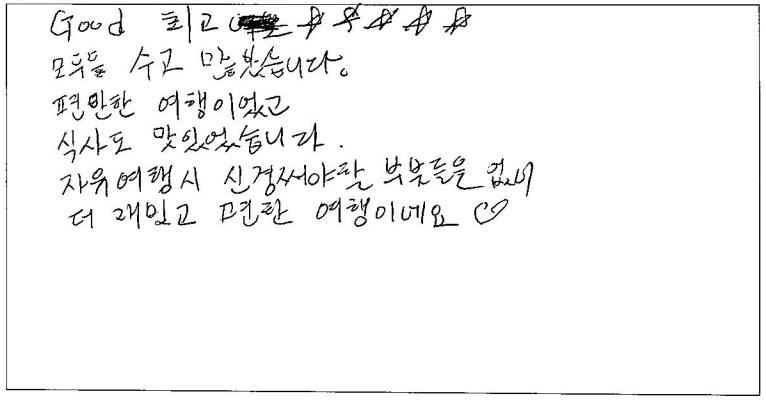 Good 최고 ☆☆☆☆☆
모두들 수고 많으셨습니다。
편안한 여행이었고
식사도 맛있었습니다.
자유여행시 신경써야할 부분들을 없애
더 재밌고 편한 여행이네요 ♡